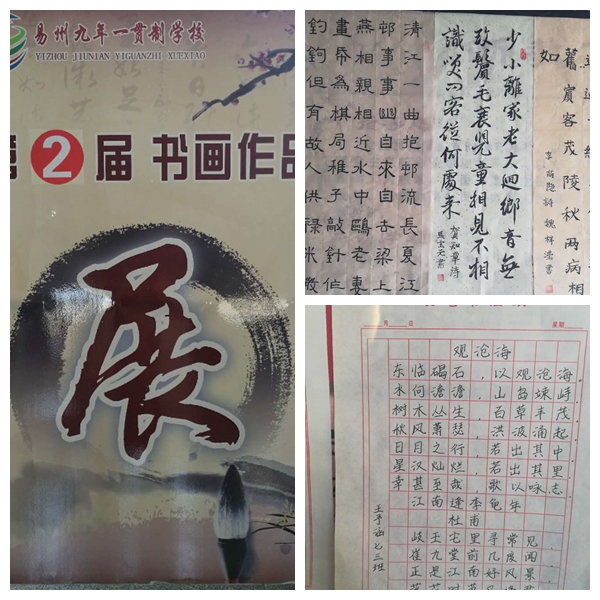 易州九年一貫制学校
YIZHOU JIUNIAN YIGUANZHI XUEXIAO
第2届 书画作品
展
舊賓客茂陵秋雨病相
如
李商隐詩
少小離家老大迴鄉音無
改鬢毛衰兒童相見不相
識笑问客從何處来
賀知章诗
清江一曲抱邨流長夏江
邨事事幽自來自去梁上
燕相親相近水中鷗老妻
畫帋為棋局稚子敲針作
釣鉤但有故人供禄米
月 日 星期
观沧海
东临碣石，以观沧海。
水何澹澹，山岛竦峙。
树木丛生，百草丰茂。
秋风萧瑟，洪波涌起。
日月之行，若出其中；
星汉灿烂，若出其里。
幸甚至哉，歌以咏志
江南逢李龟年
杜甫
岐王宅里寻常见，
崔九堂前几度闻
正是江南好风景
七三班